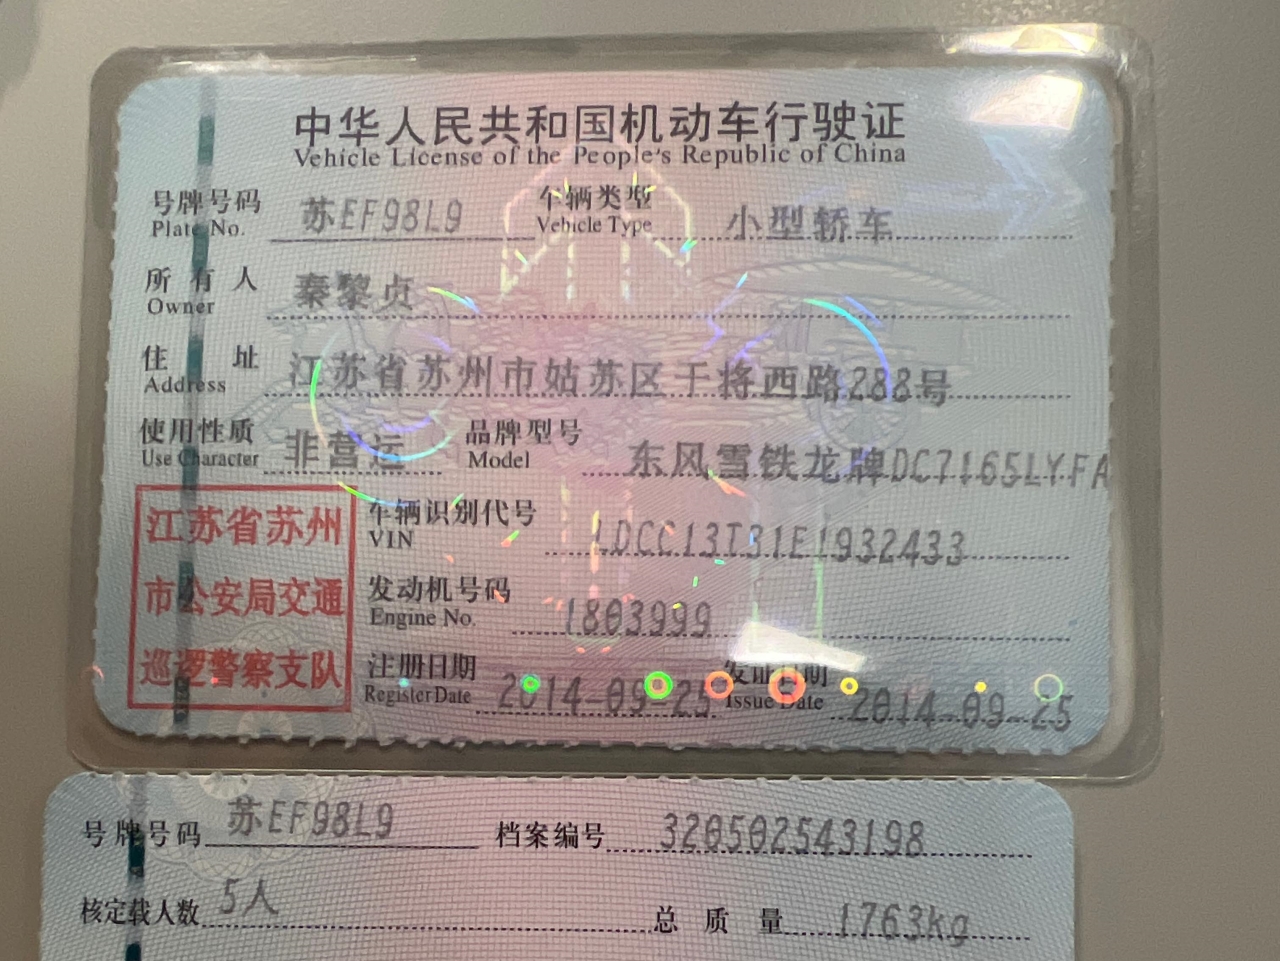 中华人民共和国机动车行驶证
Vehicle License of the People's Republic of China
号牌号码 苏EF98L9 车辆类型 小型轿车
Plate No. Vehicle Type
所有人 秦黎贞
Owner
住址 江苏省苏州市姑苏区干将西路288号
Address
使用性质 非营运 品牌型号 东风雪铁龙牌DC7165LYFA
Use Character Model
江苏省苏州
市公安局交通
巡逻警察支队
车辆识别代号 LDCC13T31E1932433
VIN
发动机号码 1803999
Engine No.
注册日期 2014-09-25 发证日期 2014-09-25
Register Date Issue Date
号牌号码 苏EF98L9 档案编号 320502543198
核定载人数 5人 总质量 1763kg